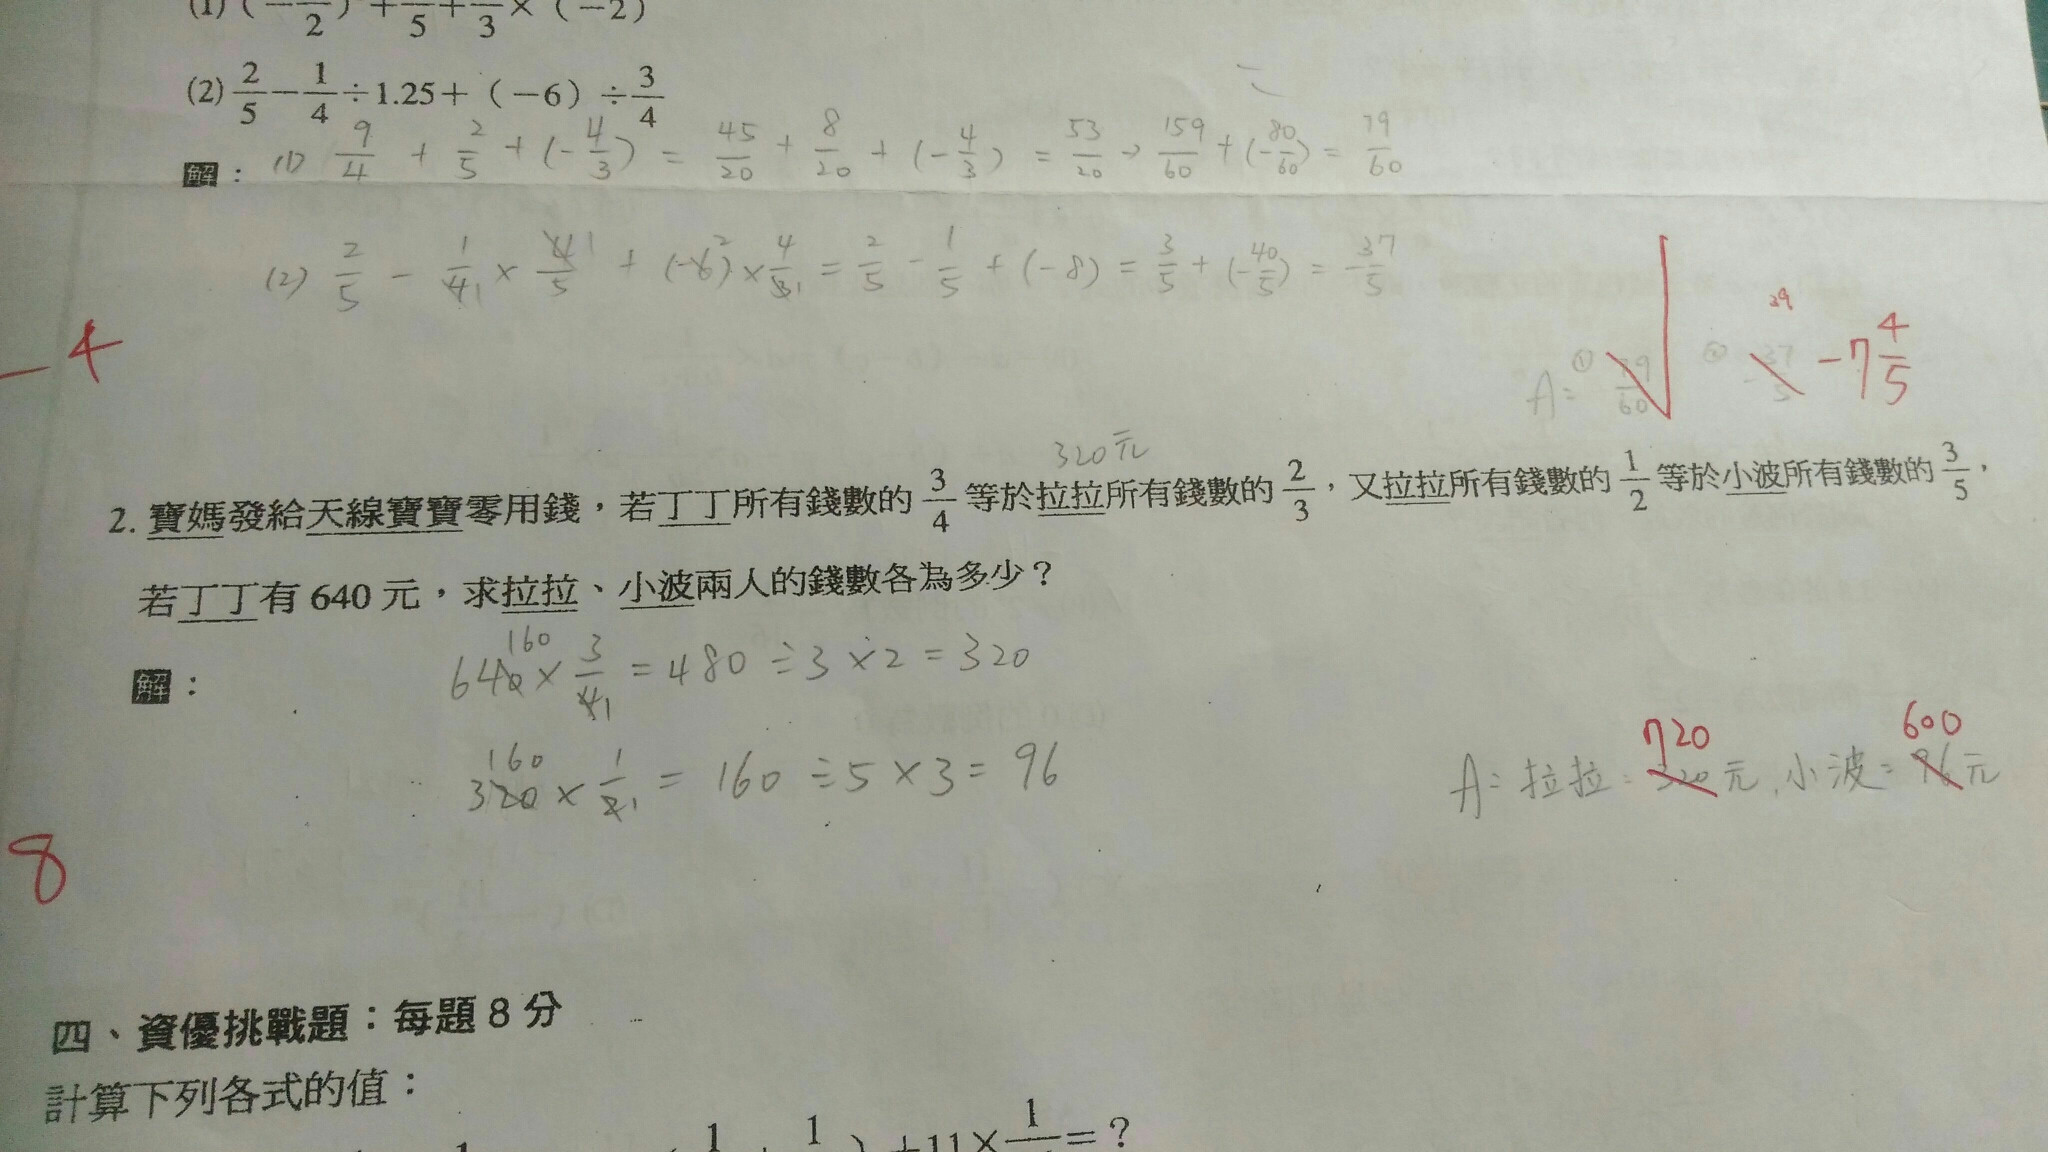 (1) (−/2) +/5+/3×(−2)
(2) 2/5−1/4÷1.25+(−6)÷3/4
解：(1) 9/4 + 2/5 + (−4/3) = 45/20 + 8/20 + (−4/3) = 53/20 → 159/60 + (−80/60) = 79/60
(2) 2/5 − 1/4 1 × 4/5 1 + (−6)2 × 4/3 1 = 2/5 − 1/5 + (−8) = 3/5 + (−40/5) = −37/5
−4
A= ① 79/60 ② −37/5 39 −7 4/5
320元
2. 寶媽發給天線寶寶零用錢，若丁丁所有錢數的 3/4 等於拉拉所有錢數的 2/3，又拉拉所有錢數的 1/2 等於小波所有錢數的 3/5，
若丁丁有 640 元，求拉拉、小波兩人的錢數各為多少？
解：
160
640 × 3/4 1 = 480 ÷ 3 × 2 = 320
160
320 × 1/2 1 = 160 ÷ 5 × 3 = 96
720 600
A= 拉拉= 320元,小波= 96元
8
四、資優挑戰題：每題 8 分
計算下列各式的值：
1 (1 + 1) +11×1 =？